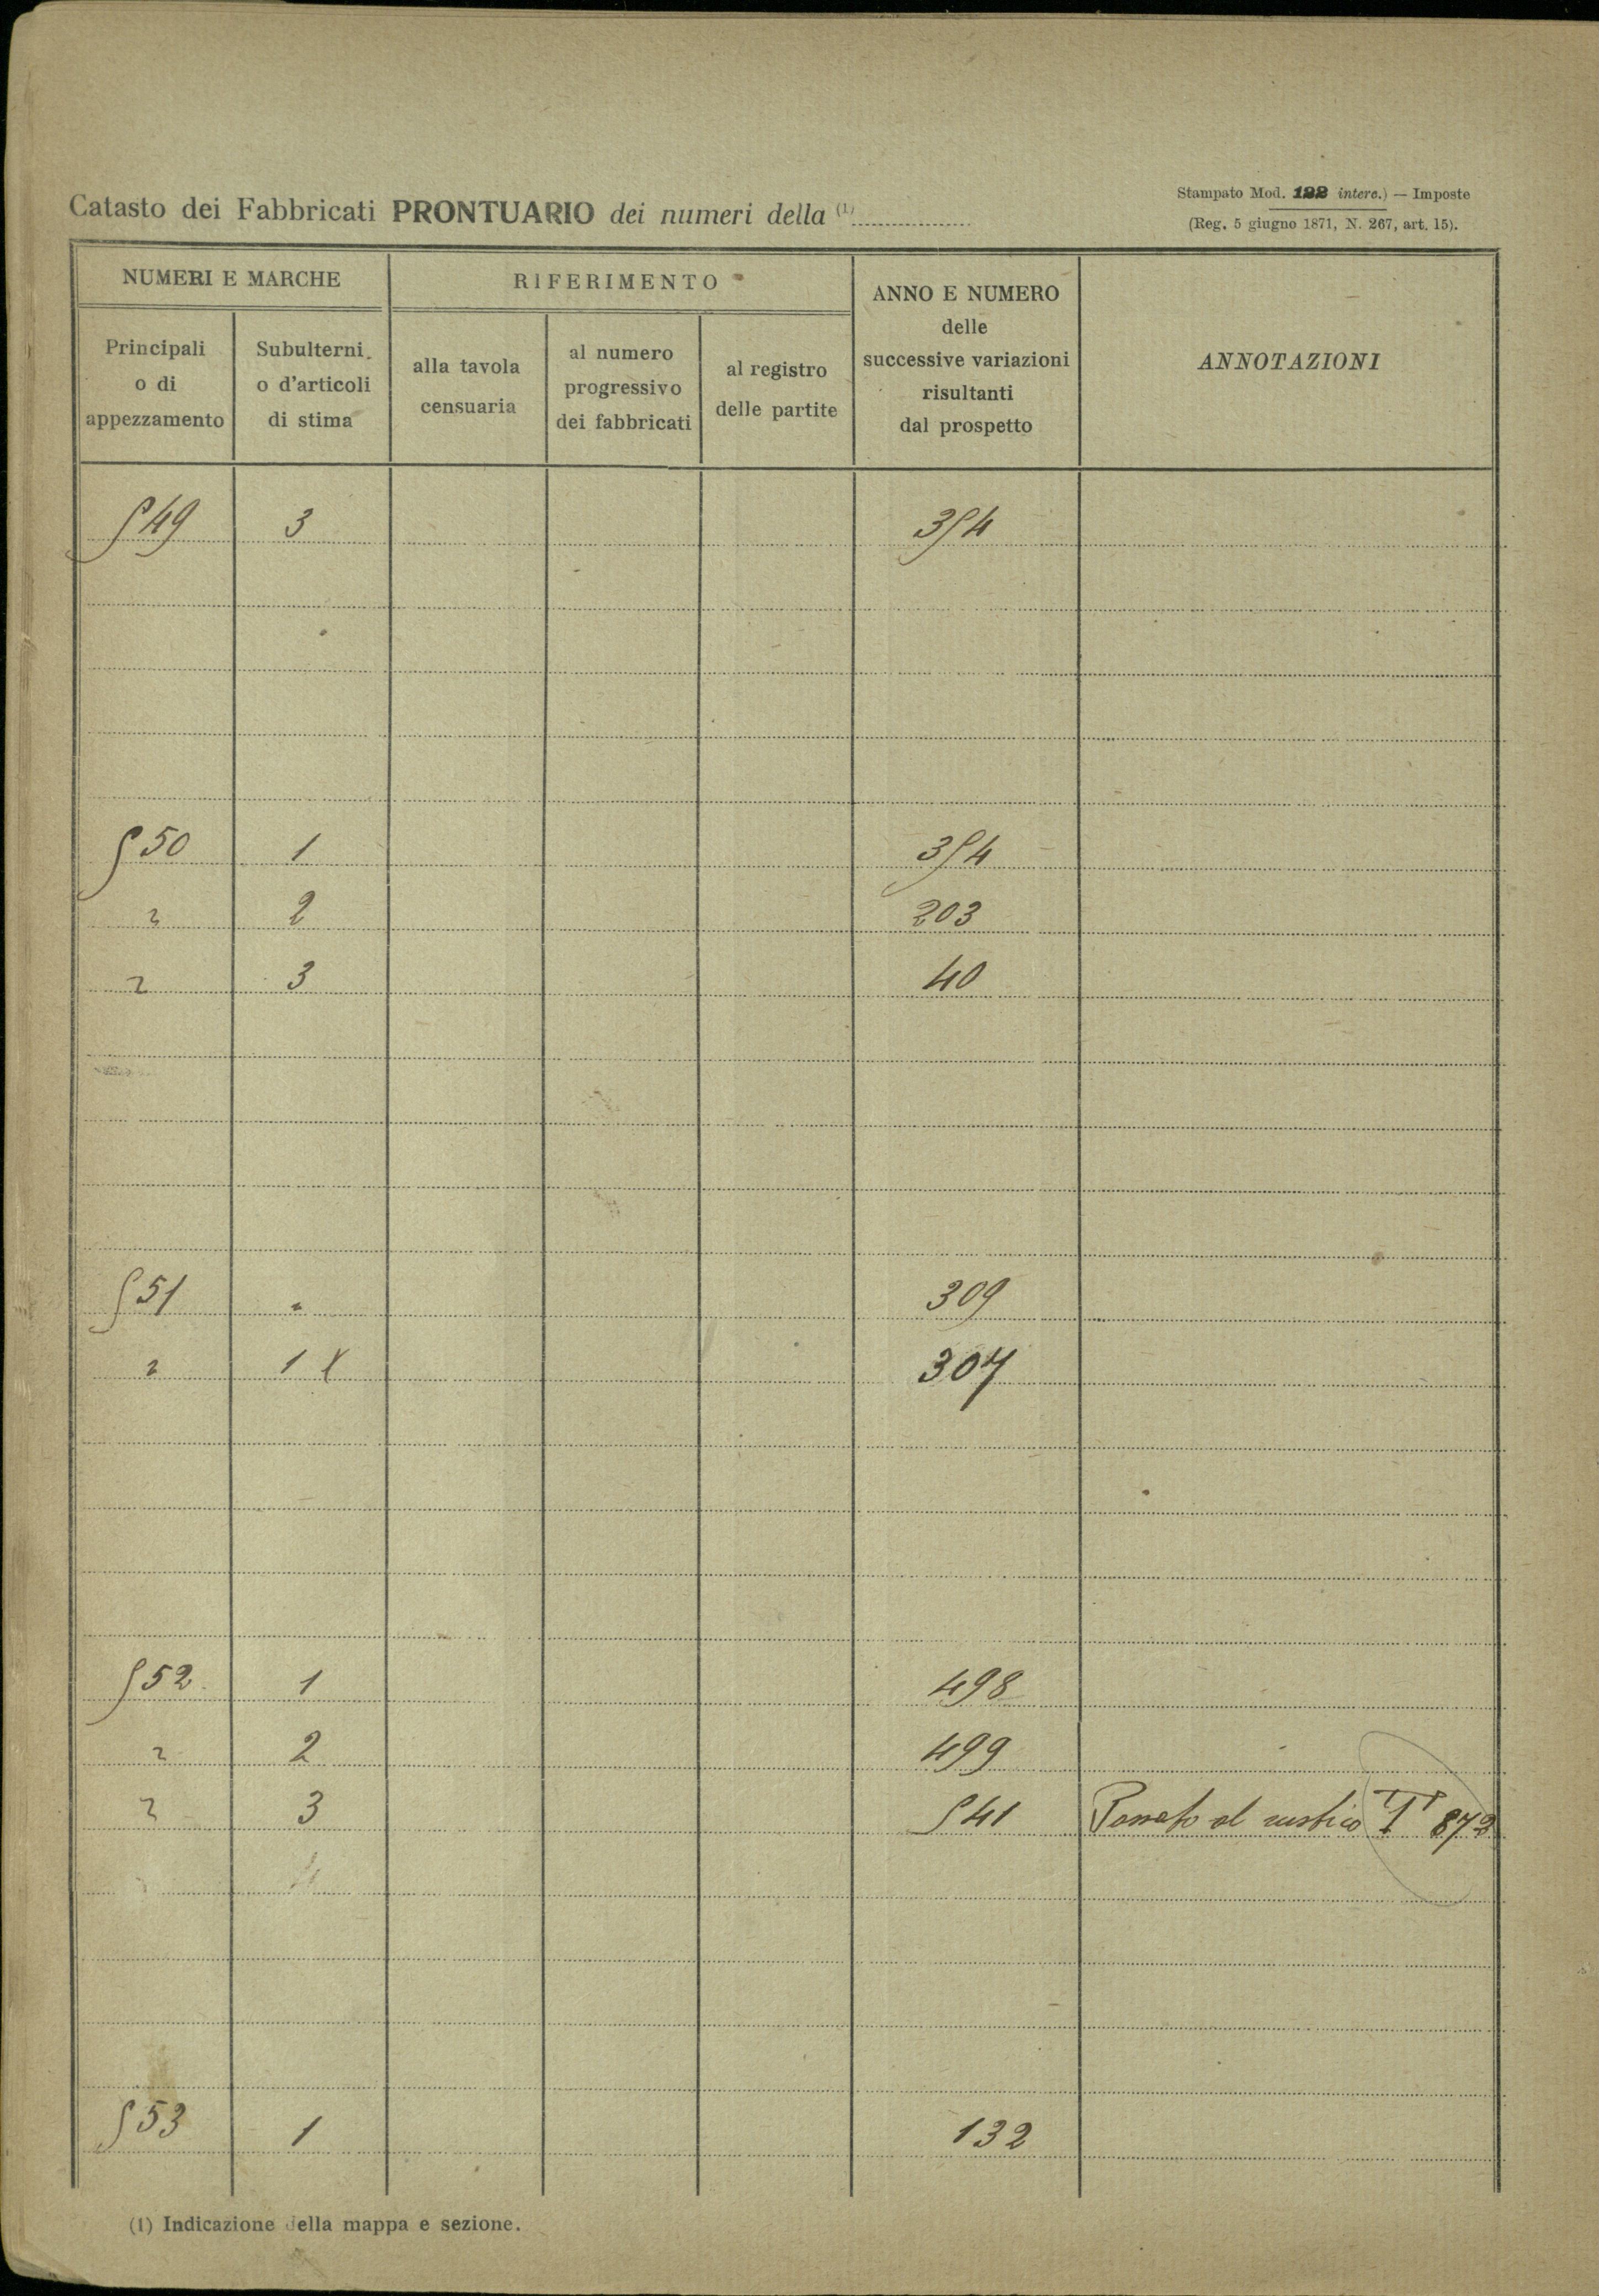 Stampato Mod. 122 interc.) — Imposte
(Reg. 5 giugno 1871, N. 267, art. 15).
Catasto dei Fabbricati PRONTUARIO dei numeri della (1)
NUMERI E MARCHE
RIFERIMENTO
ANNO E NUMERO
delle
successive variazioni
risultanti
dal prospetto
ANNOTAZIONI
Principali
o di
appezzamento
Subulterni
o d'articoli
di stima
alla tavola
censuaria
al numero
progressivo
dei fabbricati
al registro
delle partite
549 3 354
550 1 354
" 2 203
" 3 40
551 " 309
" 1 307
552 1 498
" 2 499
" 3 541 Passato al rustico T 872
553 1 132
(1) Indicazione della mappa e sezione.